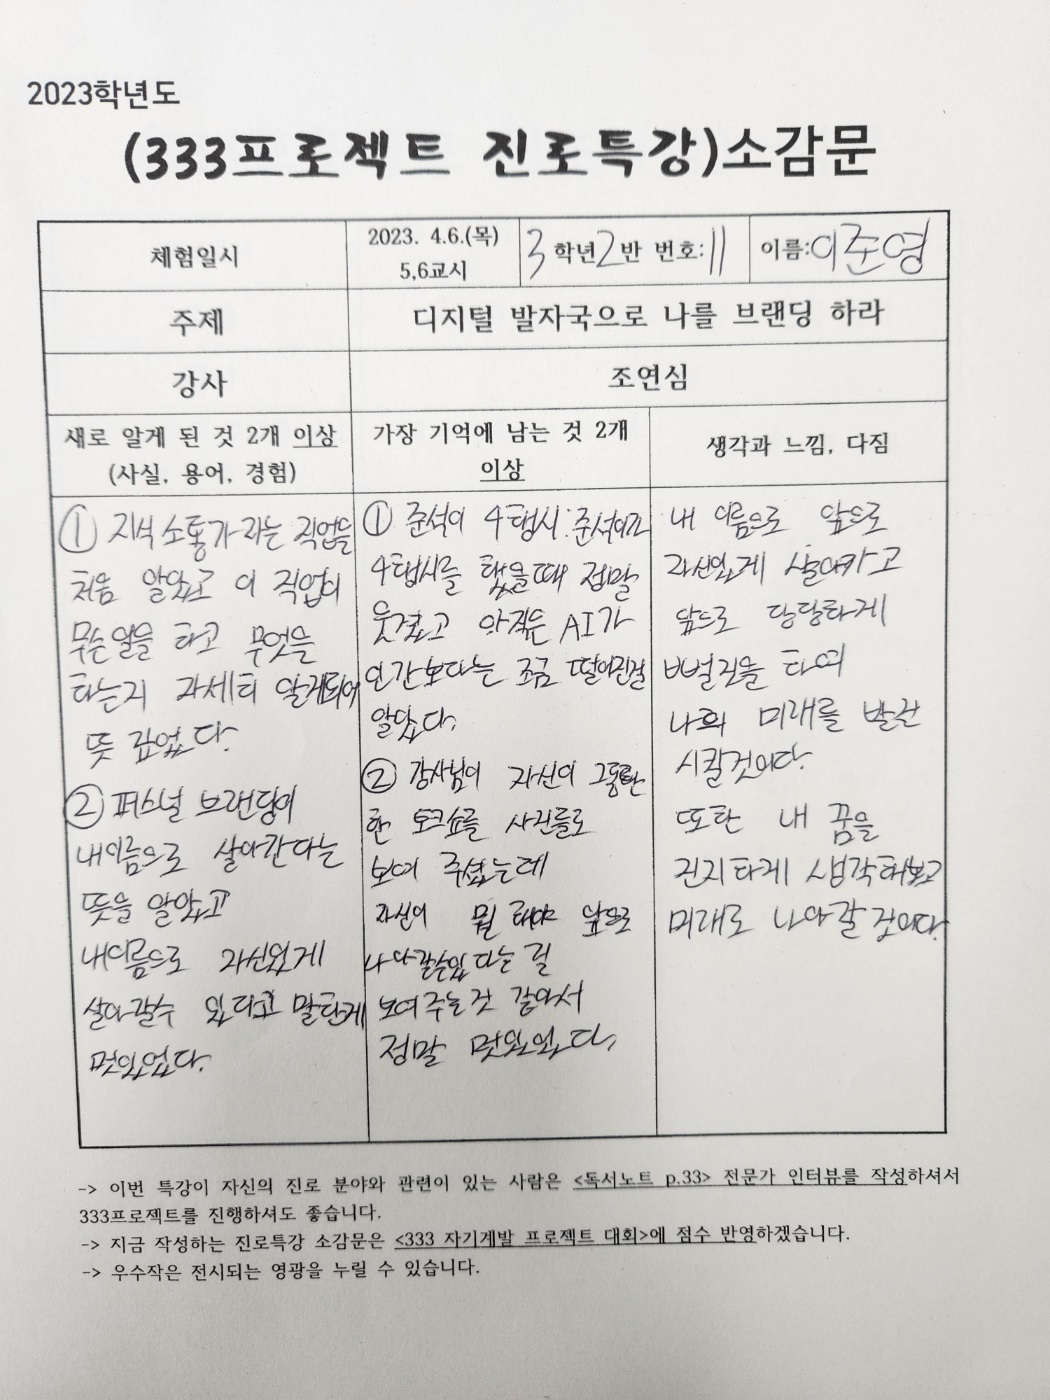 2023학년도
(333프로젝트 진로특강)소감문
체험일시
2023. 4.6.(목)
5,6교시
3학년 2반 번호: 11
이름: 이준영
주제
디지털 발자국으로 나를 브랜딩 하라
강사
조연심
새로 알게 된 것 2개 이상
(사실, 용어, 경험)
가장 기억에 남는 것 2개
이상
생각과 느낌, 다짐
① 지식소통가라는 직업을
처음 알았고 이 직업이
무슨일을 하고 무엇을
하는지 자세히 알게되어
뜻 깊었다.
② 퍼스널 브랜딩이
내이름으로 살아간다는
뜻을 알았고
내이름으로 자신있게
살아갈수 있다고 말한게
멋있었다.
① 준석이 4행시: 준석이가
4행시를 했을때 정말
웃겼고 아직은 AI가
인간보다는 조금 떨어진걸
알았다.
② 강사님이 자신이 그동안
한 토크쇼를 사진들로
보여 주셨는데
자신이 뭘 해야 앞으로
나아갈수있다는 걸
보여주는것 같아서
정말 멋있었다.
내 이름으로 앞으로
자신있게 살아가고
앞으로 당당하게
브랜딩을 하여
나의 미래를 발전
시킬것이다.
또한 내 꿈을
진지하게 생각해보고
미래로 나아갈 것이다.
-> 이번 특강이 자신의 진로 분야와 관련이 있는 사람은 <독서노트 p.33> 전문가 인터뷰를 작성하셔서
333프로젝트를 진행하셔도 좋습니다.
-> 지금 작성하는 진로특강 소감문은 <333 자기계발 프로젝트 대회>에 점수 반영하겠습니다.
-> 우수작은 전시되는 영광을 누릴 수 있습니다.